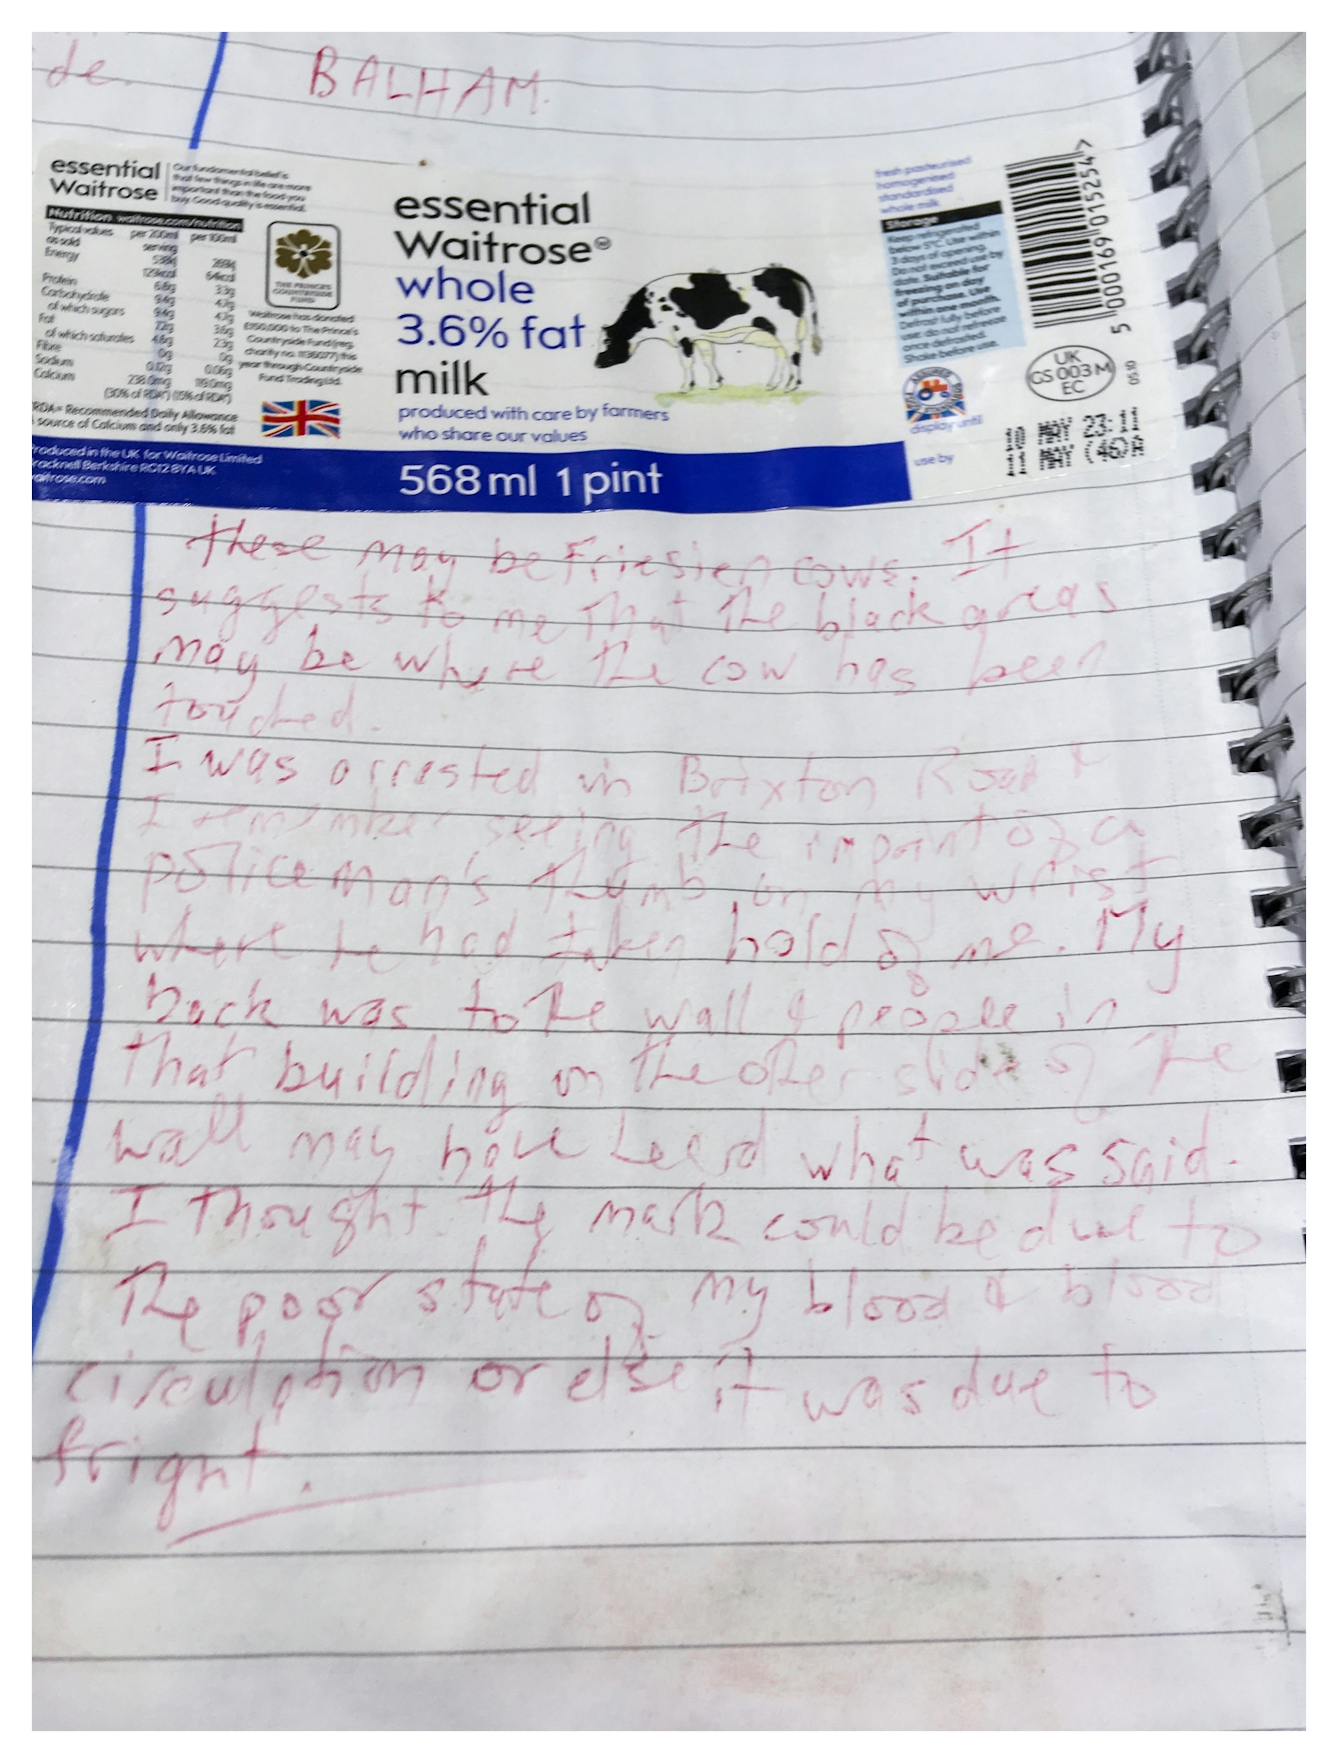 de.
BALHAM.
essential
Waitrose
Our fundamental belief is
that few things in life are more
important than the food you
buy. Good quality is essential.
Nutrition waitrose.com/nutrition
Typical values per 200ml per 100ml
as sold serving
Energy 538kJ 269kJ
129kcal 64kcal
Protein 6.6g 3.3g
Carbohydrate 9.4g 4.7g
of which sugars 9.4g 4.7g
Fat 7.2g 3.6g
of which saturates 4.6g 2.3g
Fibre 0g 0g
Sodium 0.12g 0.06g
Calcium 238.0mg 119.0mg
(30% of RDA*) (15% of RDA*)
RDA= Recommended Daily Allowance
source of Calcium and only 3.6% fat
THE PRINCE'S
COUNTRYSIDE
FUND
Waitrose has donated
£150,000 to The Prince's
Countryside Fund (reg.
charity no. 1136077) this
year through Countryside
Fund Trading Ltd.
roduced in the UK for Waitrose Limited
racknell Berkshire RG12 8YA UK
aitrose.com
essential
Waitrose®
whole
3.6% fat
milk
produced with care by farmers
who share our values
568ml 1 pint
fresh pasteurised
homogenised
standardised
whole milk
Storage
Keep refrigerated
below 5°C. Use within
3 days of opening.
Do not exceed use by
date. Suitable for
freezing on day
of purchase. Use
within one month.
Defrost fully before
use, do not refreeze
once defrosted.
Shake before use.
display until
use by
5 000169 015254 >
UK
GS 003 M
EC
10 MAY 23:11
11 MAY
these may be Friesien cows. It
suggests to me that the black areas
may be where the cow has been
touched.
I was arrested in Brixton Road &
I remember seeing the imprint of a
policeman's thumb on my wrist
where he had taken hold of me. My
back was to the wall & people in
that building on the other side of the
wall may have heard what was said.
I thought the mark could be due to
the poor state of my blood & blood
circulation or else it was due to
fright.